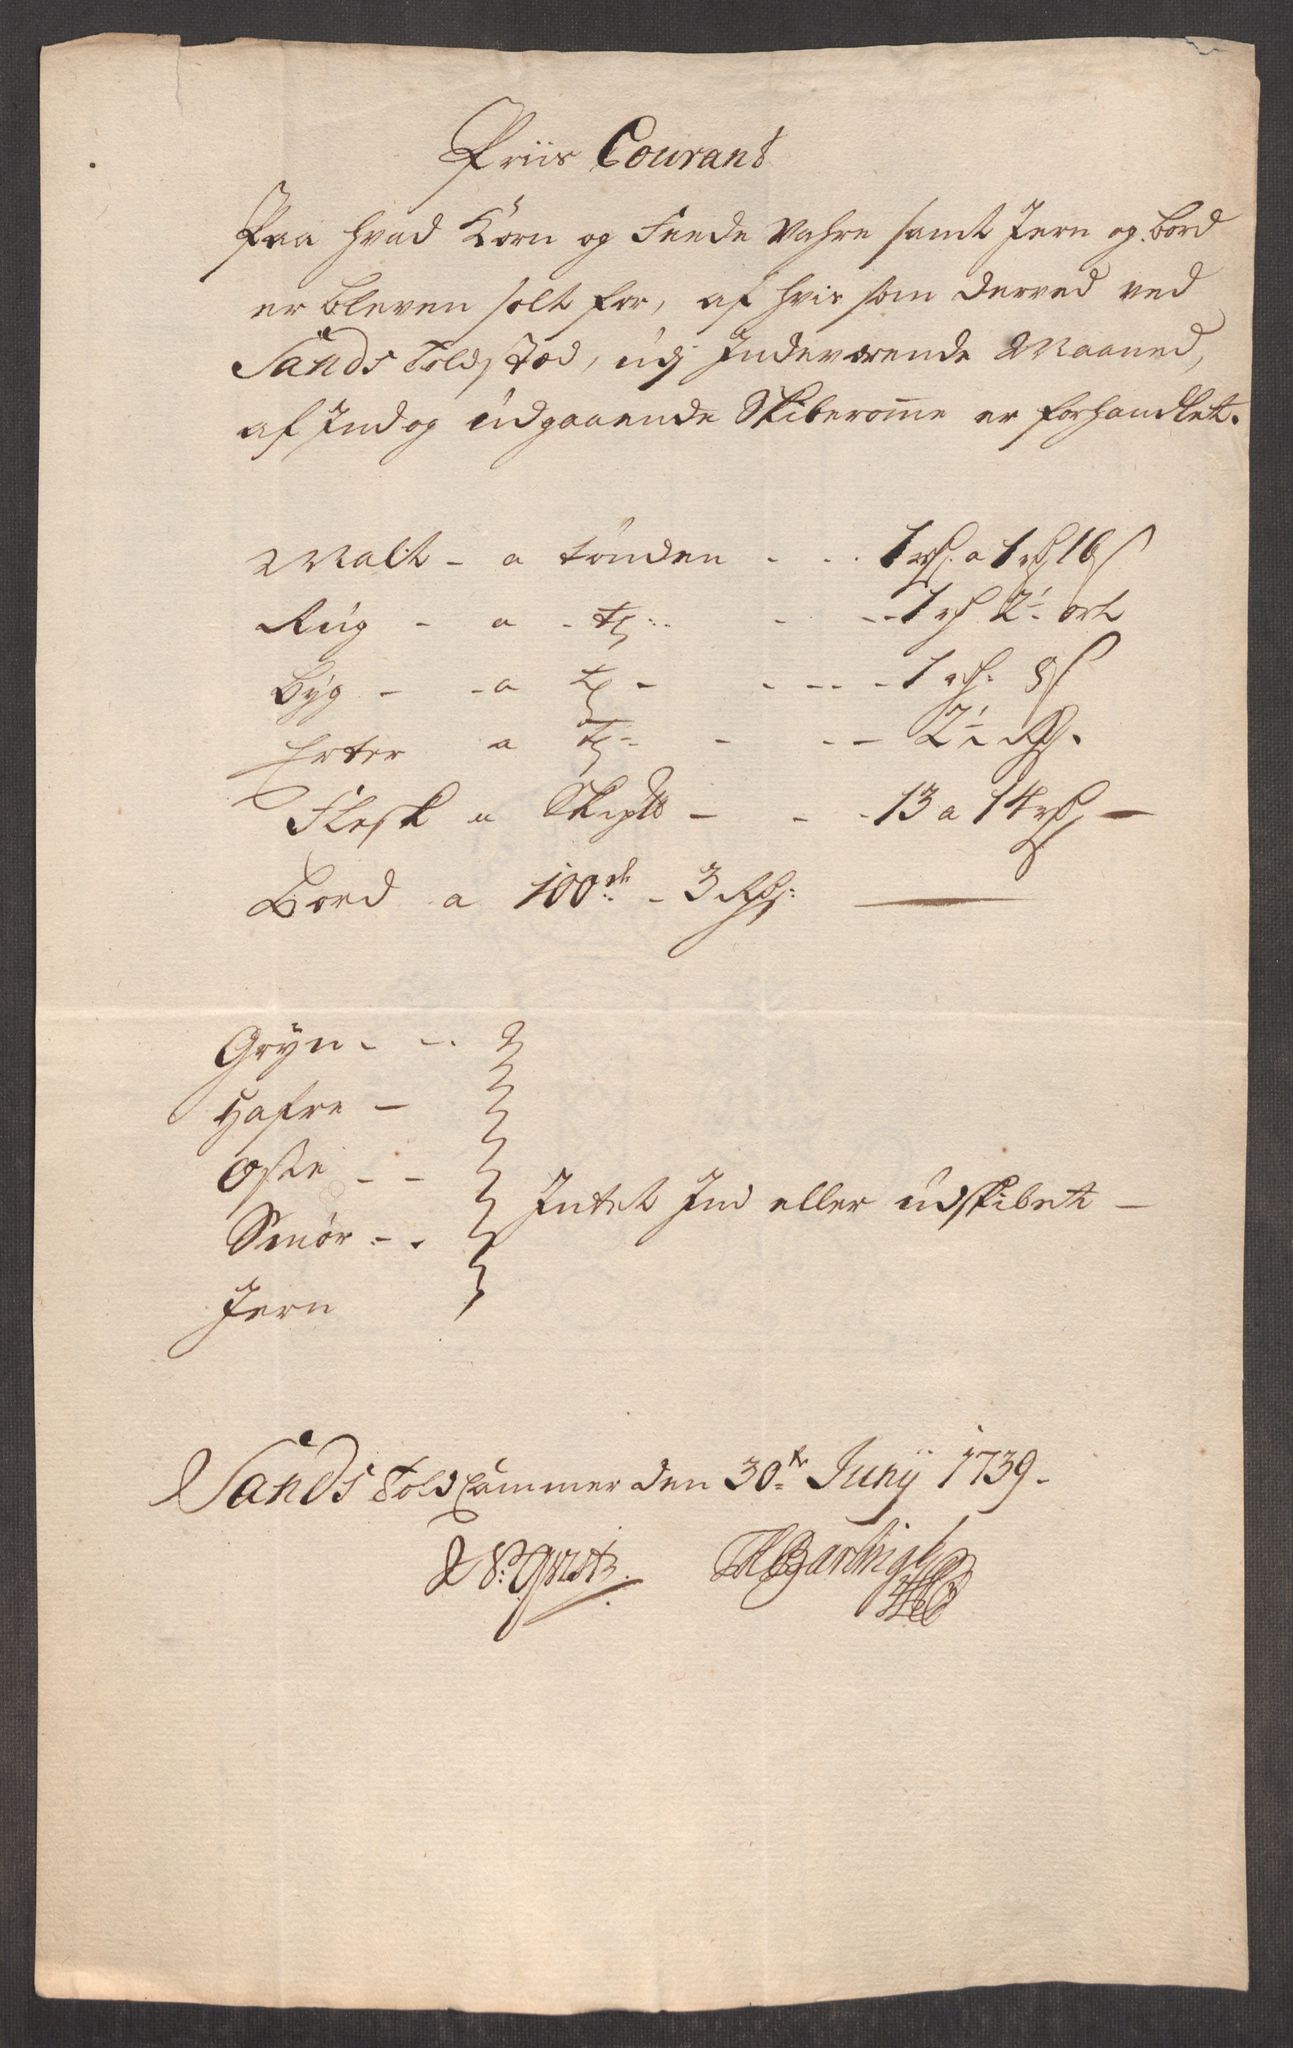 Priis Courant
Paa hvad Korn og Feede Vahre samt Jern og Bord
er bleven solt for, af hvis som derved ved
Sands Toldstæd, udj Indeværende Maaned,
af Ind og udgaaende Skiberome er forhandlet.
Malt - a tønden - - - 1 rd. a 1 rd 16 s
Rug - a - td - - - 1 rd 2 1/2 ort
Byg - - a td - - - - 1 rd. 8 s
Erter a td - - - 2 1/2 Rd.
Flesk a Skip℔ - - - 13 a 14 rd -
Bord a 100de - 3 Rd:
Gryn - -
Hafre -
Oste - -
Intet Ind eller udskibet -
Smør - -
Jern
Sands Told Cammer den 30te Junij 1739.